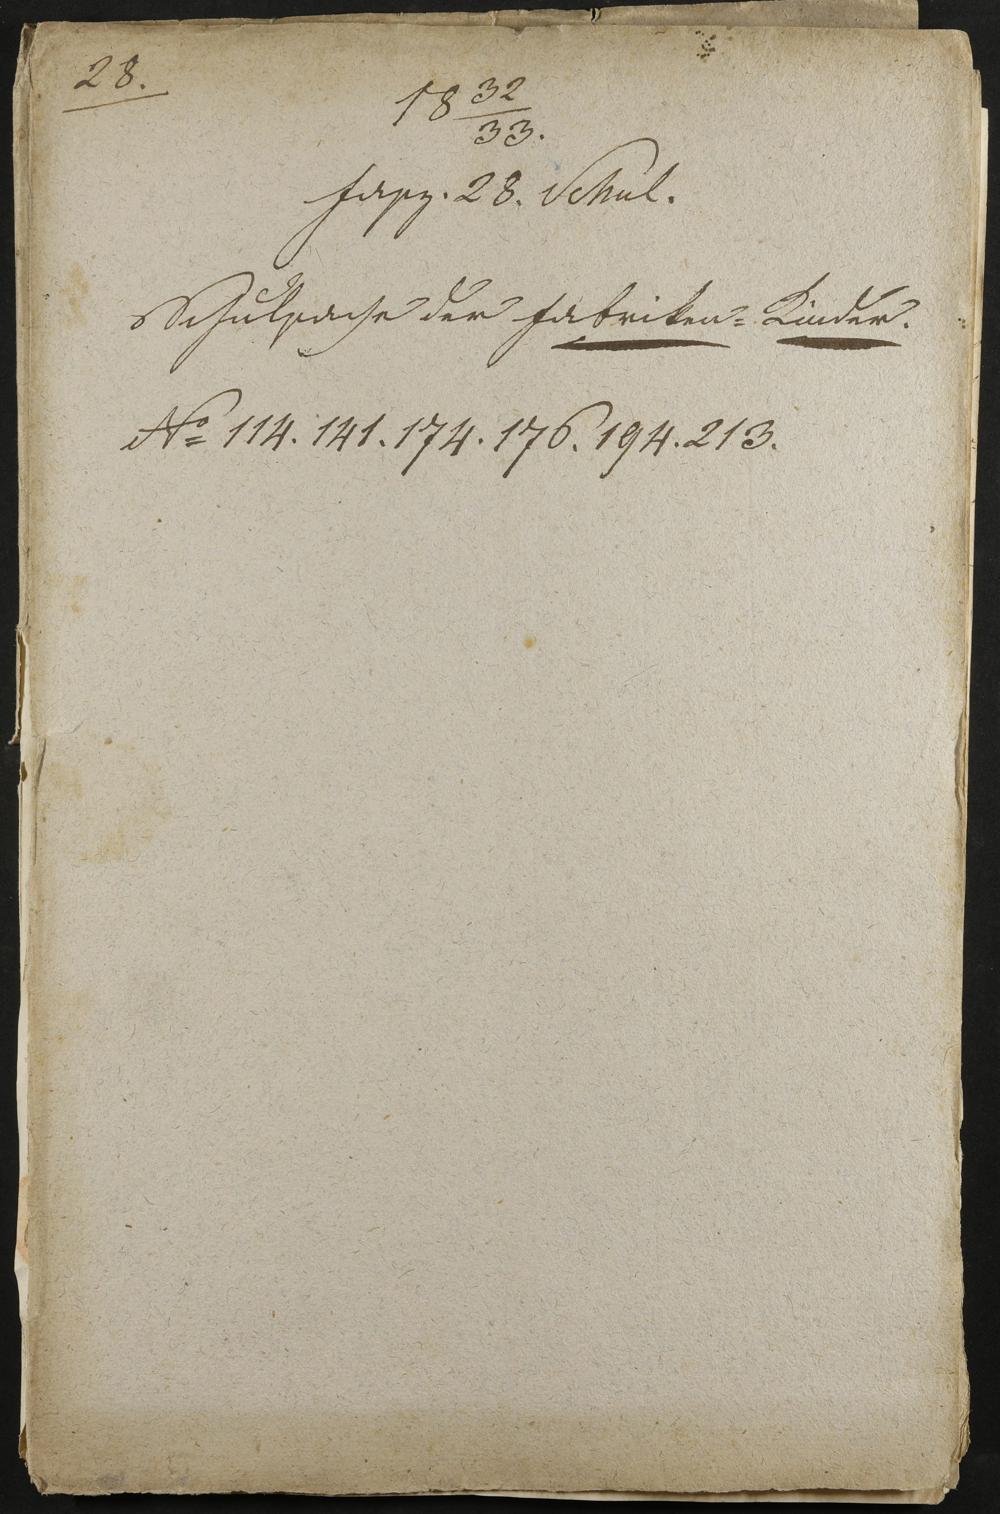 28.
18 32/33.
Fasz. 28. Schul.
Schulsache der Fabriken= Kinder.
No 114. 141. 174. 176. 194. 213.